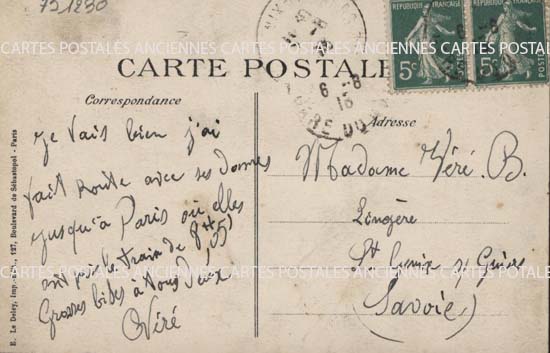 751230
CARTES POSTALES ANCIENNES CARTES POSTALES ANCIENNES CARTES POSTALES
REPUBLIQUE FRANÇAISE
REPUBLIQUE FRANÇAISE
5c
5c
6 -8
13
CARTE POSTALE
Correspondance
Adresse
E. Le Deley, Imp., 127, Boulevard de Sébastopol - Paris
Je vais bien j'ai
fait route avec ses Dames
jusqu'à Paris où elles
ont pris le train de 8ht 55
Grosses bises à Vous Deux
Véré
Madame Véré. B.
Lingère
St
(Savoie)
CARTES POSTALES ANCIENNES CARTES POSTALES ANCIENNES CARTES POSTALES